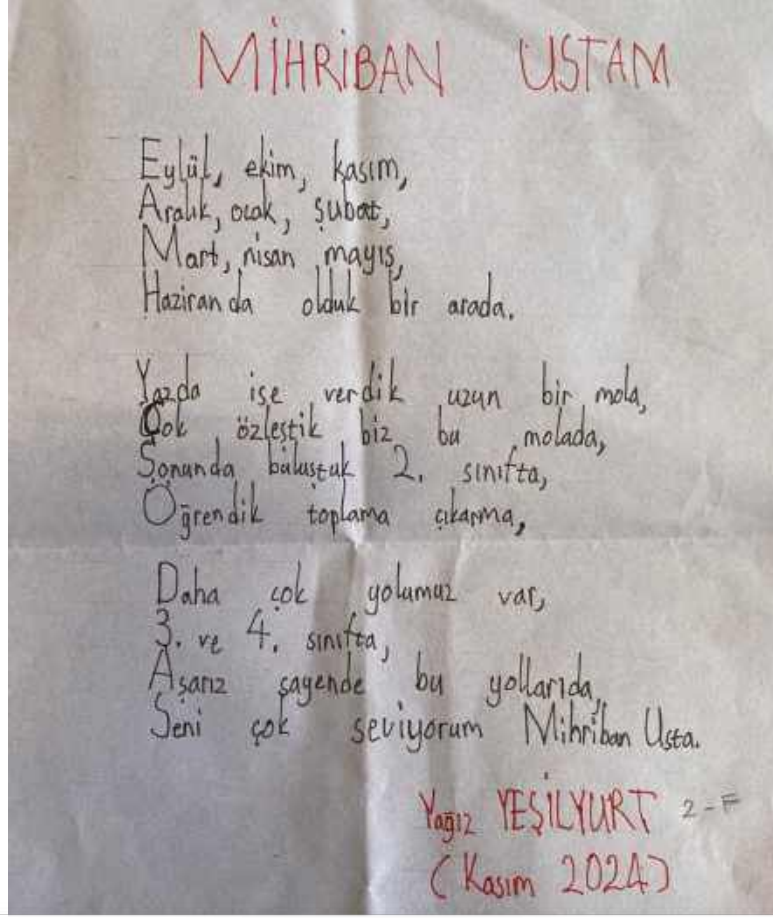 MİHRİBAN USTAM
Eylül, ekim, kasım,
Aralık, ocak, şubat,
Mart, nisan mayıs,
Haziran da olduk bir arada.
Yazda ise verdik uzun bir mola,
Çok özleştik biz bu molada,
Sonunda buluştuk 2. sınıfta,
Öğrendik toplama çıkarma,
Daha çok yolumuz var,
3. ve 4. sınıfta,
Aşarız sayende bu yollarıda,
Seni çok seviyorum Mihriban Usta.
Yağız YEŞİLYURT 2-F
(Kasım 2024)